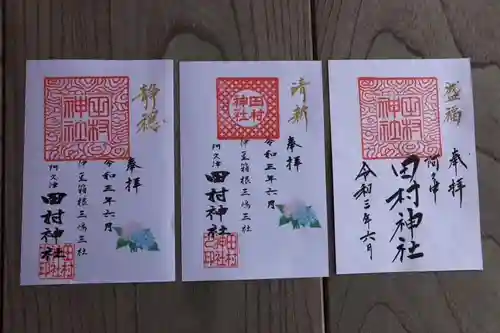 静穏
奉拝
令和三年六月
伊豆箱根三嶋三社
阿久津
田村神社
田村神社
清新
奉拝
令和三年六月
伊豆箱根三嶋三社
阿久津
田村神社
田村神社
盛福
奉拝
阿久津
田村神社
令和三年六月
田村神社